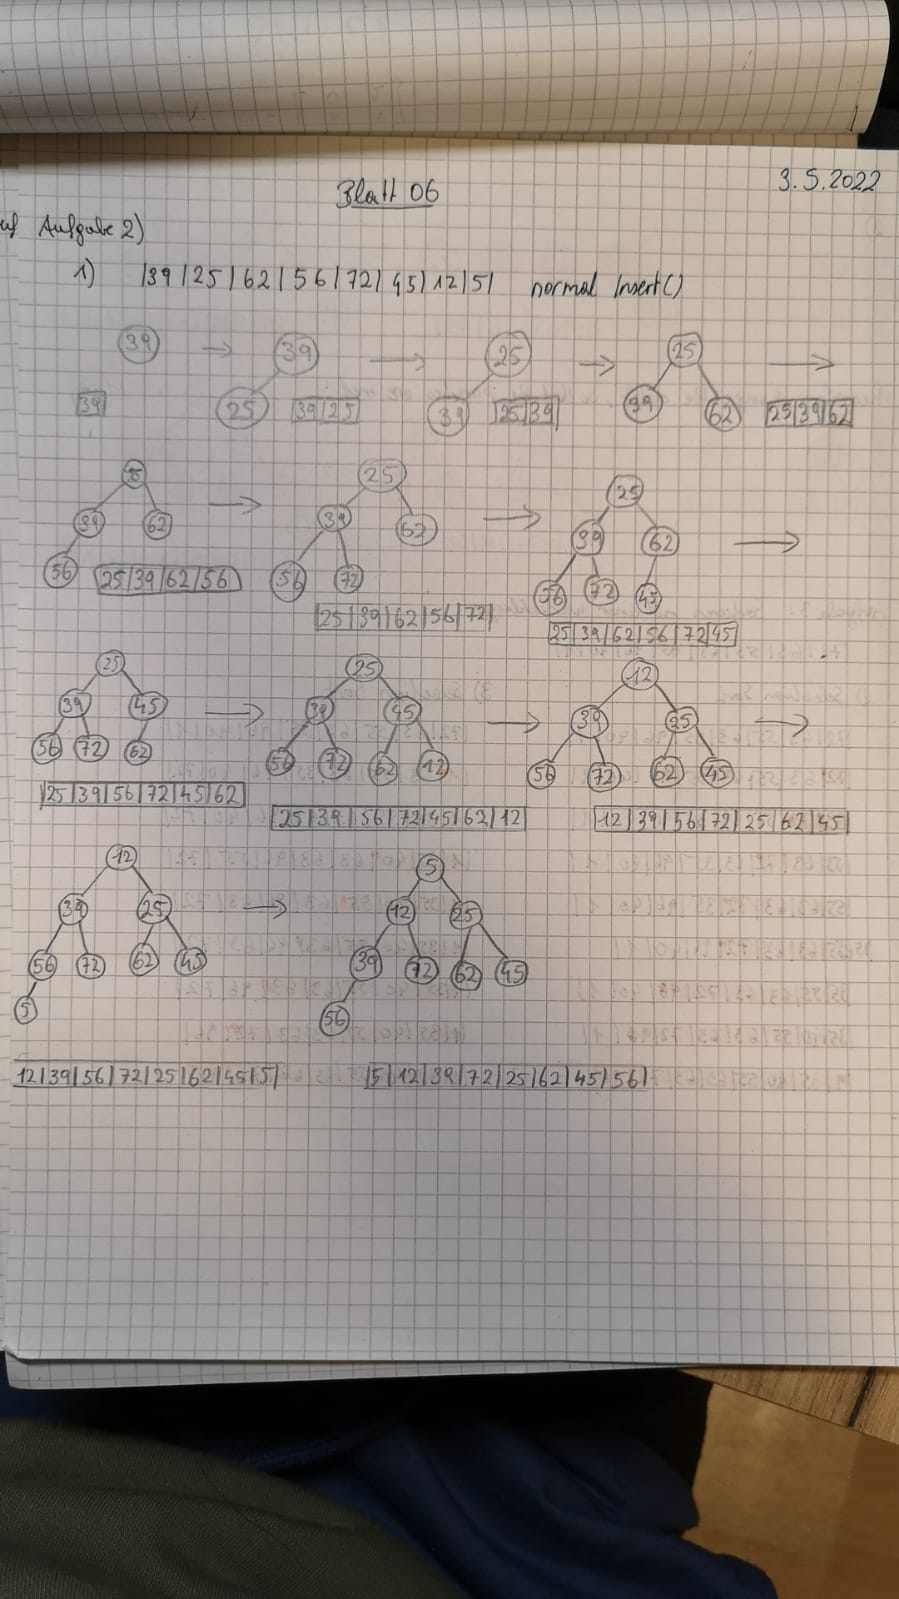 Blatt 06
3.5.2022
Aufgabe 2)
1) |39|25|62|56|72|45|12|5| normal Insert()
39 39 25 25
25 39 39 62
39
39|25
25|39
25|39|62
25 25 25
39 62 39 62 39 62
56 56 72 56 72 45
25|39|62|56
25|39|62|56|72
25|39|62|56|72|45
25 25 12
39 45 39 45 39 25
56 72 62 56 72 62 12 56 72 62 45
25|39|56|72|45|62
25|39|56|72|45|62|12
12|39|56|72|25|62|45
12 5
39 25 12 25
56 72 62 45 39 72 62 45
5 56
12|39|56|72|25|62|45|5|
|5|12|39|72|25|62|45|56|